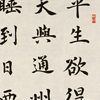 平生欲得
大與通州
睡到日西